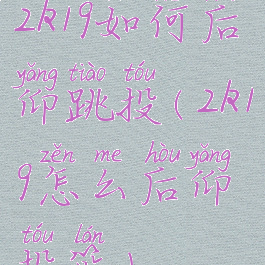 2K19如何后
yǎng tiào tóu
仰跳投(2K1
zěn me hòu yǎng
9怎么后仰
tóu lán
投篮)